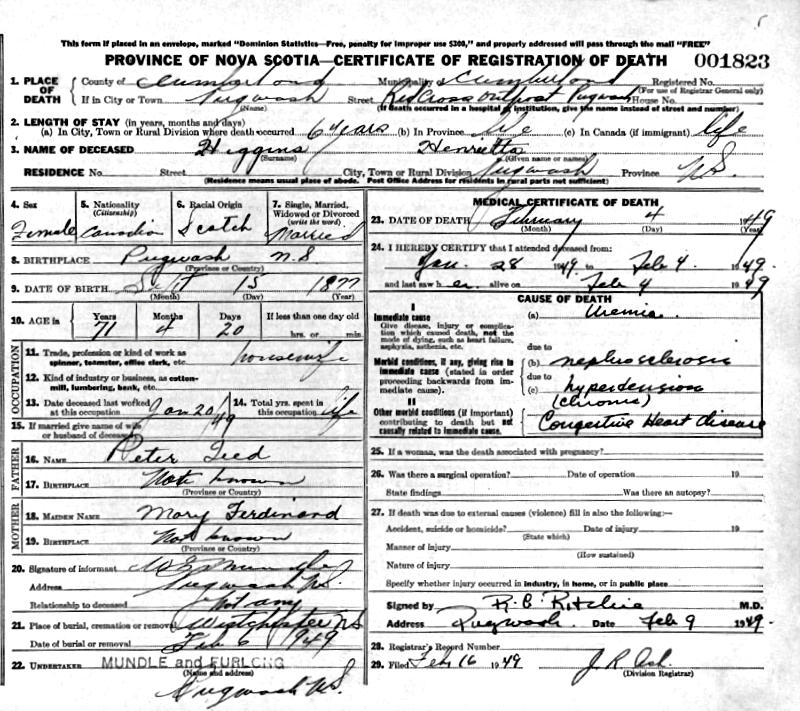 This form if placed in an envelope, marked "Dominion Statistics—Free, penalty for improper use $300," and properly addressed will pass through the mail "FREE"
PROVINCE OF NOVA SCOTIA—CERTIFICATE OF REGISTRATION OF DEATH 001823
1. PLACE OF DEATH
County of Cumberland Municipality Cumberland Registered No.
(For use of Registrar General only)
If in City or Town Pugwash Street Red Cross Outpost Pugwash House No.
(Name) (If death occurred in a hospital or institution, give the name instead of street and number)
2. LENGTH OF STAY (in years, months and days)
(a) In City, Town or Rural Division where death occurred 6 years (b) In Province life (c) In Canada (if immigrant) life
3. NAME OF DECEASED Higgins Henrietta
(Surname) (Given name or names)
RESIDENCE No. Street City, Town or Rural Division Pugwash Province N.S.
(Residence means usual place of abode. Post Office Address for residents in rural parts not sufficient)
4. Sex
Female
5. Nationality
(Citizenship)
Canadian
6. Racial Origin
Scotch
7. Single, Married, Widowed or Divorced
(write the word)
Married
8. BIRTHPLACE Pugwash N.S
(Province or Country)
9. DATE OF BIRTH Sept 15 1877
(Month) (Day) (Year)
10. AGE in
Years Months Days If less than one day old
71 4 20 hrs. or min.
OCCUPATION
11. Trade, profession or kind of work as spinner, teamster, office clerk, etc. housewife
12. Kind of industry or business, as cotton-mill, lumbering, bank, etc.
13. Date deceased last worked at this occupation Jan 20/49
14. Total yrs. spent in this occupation life
15. If married give name of wife or husband of deceased
FATHER
16. NAME Peter Teed
17. BIRTHPLACE Not known
(Province or Country)
MOTHER
18. MAIDEN NAME Mary Ferdinand
19. BIRTHPLACE Not known
(Province or Country)
20. Signature of informant Mundle
Address Pugwash N.S.
Relationship to deceased Not any
21. Place of burial, cremation or removal Westchester N.S
Date of burial or removal Feb 6 1949
22. UNDERTAKER MUNDLE and FURLONG
(Name and address)
Pugwash N.S.
MEDICAL CERTIFICATE OF DEATH
23. DATE OF DEATH February 4 1949
(Month) (Day) (Year)
24. I HEREBY CERTIFY that I attended deceased from:
Jan. 28 1949 to Feb 4. 1949.
and last saw her alive on Feb 4 1949
CAUSE OF DEATH
I
Immediate cause
Give disease, injury or complication which caused death, not the mode of dying, such as heart failure, asphyxia, asthenia, etc.
(a) Uremia.
due to
Morbid conditions, if any, giving rise to immediate cause (stated in order proceeding backwards from immediate cause).
(b) nephrosclerosis
due to
(c) hypertension
(chronic)
II
Other morbid conditions (if important) contributing to death but not causally related to immediate cause.
Congestive Heart disease
25. If a woman, was the death associated with pregnancy?
26. Was there a surgical operation? Date of operation 19
State findings Was there an autopsy?
27. If death was due to external causes (violence) fill in also the following:—
Accident, suicide or homicide? Date of injury 19
(State which)
Manner of injury
(How sustained)
Nature of injury
Specify whether injury occurred in industry, in home, or in public place
Signed by R. C. Ritchie M.D.
Address Pugwash. Date Feb 9 1949.
28. Registrar's Record Number
29. Filed Feb 16 1949 J. R. Ash.
(Division Registrar)